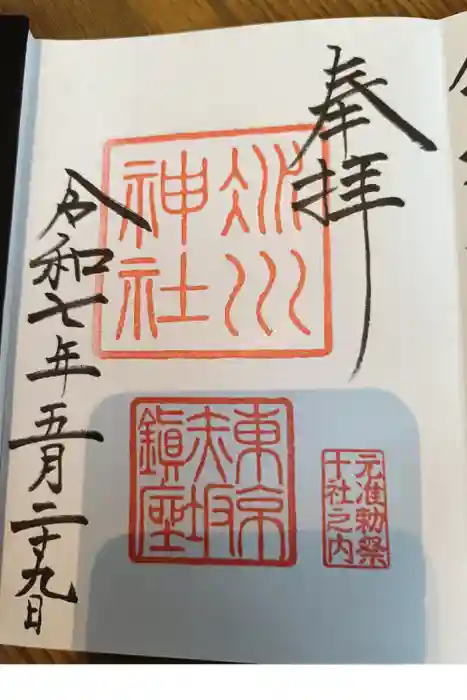 奉拝
氷川神社
東京赤坂鎮座
元准勅祭十社之内
令和七年五月二十九日